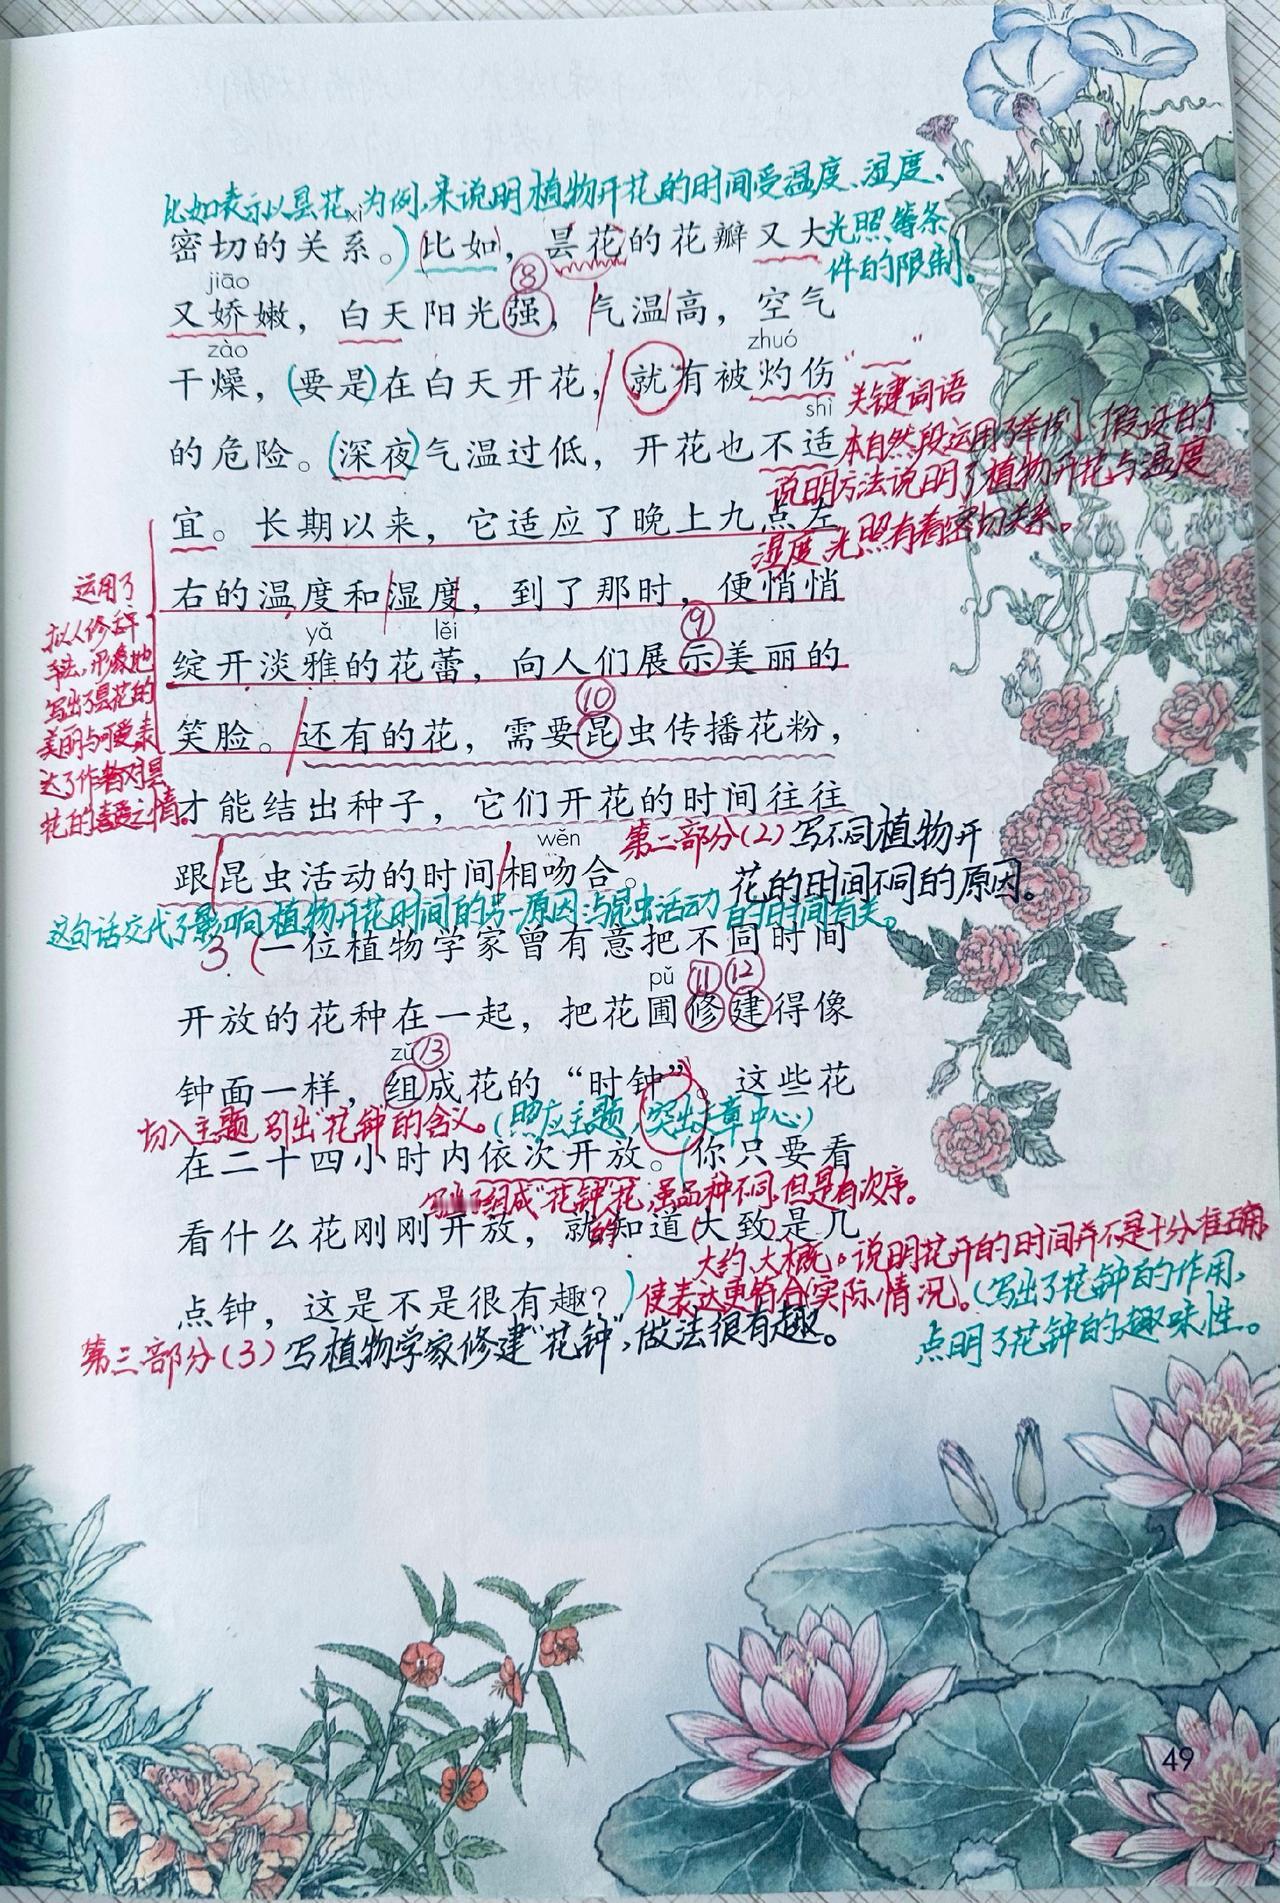 比如表示以昙花为例,来说明植物开花的时间受温度、湿度、
光照等条
件的限制。
xì
密切的关系。)(比如,昙花的花瓣又大
jiāo ⑧
又娇嫩，白天阳光强，气温高，空气
zào zhuó
干燥，(要是)在白天开花，就有被灼伤
“ ”
关键词语
shì
的危险。(深夜)气温过低，开花也不适
本自然段运用了举例、假设的
说明方法说明了植物开花与温度
湿度、光照有着密切关系。
宜。长期以来，它适应了晚上九点左
右的温度和湿度，到了那时，便悄悄
yǎ lěi ⑨
绽开淡雅的花蕾，向人们展示美丽的
⑩
笑脸。还有的花，需要昆虫传播花粉，
运用了
拟人修辞
手法,形象地
写出了昙花的
美丽与可爱,表
达了作者对昙
花的喜爱之情。
才能结出种子，它们开花的时间往往
wěn
跟昆虫活动的时间相吻合。
第二部分(2)写不同植物开
花的时间不同的原因。
这句话交代了影响植物开花时间的另一原因:与昆虫活动的时间有关。
3 (一位植物学家曾有意把不同时间
pǔ ⑪ ⑫
开放的花种在一起，把花圃修建得像
zǔ ⑬
钟面一样，组成花的“时钟”。这些花
切入主题,引出“花钟”的含义。(照应主题,突出文章中心)
在二十四小时内依次开放。(你只要看
写出了组成“花钟”的花,虽品种不同,但是有次序。
看什么花刚刚开放，就知道(大致)是几
大约、大概。说明花开的时间并不是十分准确,
使表达更符合(实际)情况。(写出了花钟的作用,
点明了花钟的趣味性。
点钟，这是不是很有趣？)
第三部分(3)写植物学家修建“花钟”,做法很有趣。
49